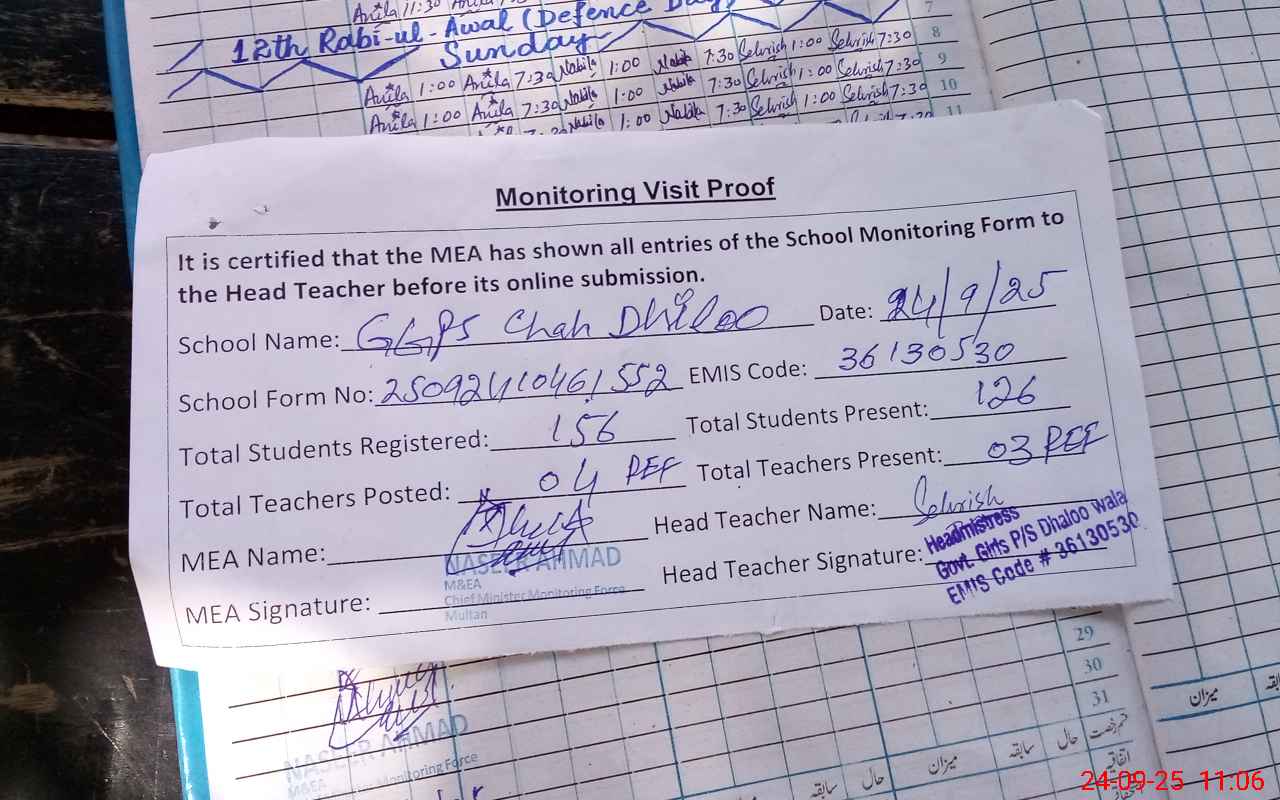 Anila 11:30
12th Rabi-ul-Awal (Defence Day)
Sunday
7
Anila 1:00 Anila 7:30 Nabila 1:00 Nabila 7:30 Sehrish 1:00 Sehrish 7:30 8
Anila 1:00 Anila 7:30 Nabila 1:00 Nabila 7:30 Sehrish 1:00 Sehrish 7:30 9
10
11
Monitoring Visit Proof
It is certified that the MEA has shown all entries of the School Monitoring Form to
the Head Teacher before its online submission.
School Name: GGPS Chah Dhiloo Date: 24/9/25
School Form No: 25092410461552 EMIS Code: 36130530
Total Students Registered: 156 Total Students Present: 126
Total Teachers Posted: 04 REF Total Teachers Present: 03 REF
MEA Name: Head Teacher Name: Sehrish
MEA Signature: Head Teacher Signature:
NASEER AHMAD
M&EA
Chief Minister Monitoring Force
Multan
Headmistress
Govt. Girls P/S Dhaloo wala
EMIS Code # 36130530
29
30
31
NASEER AHMAD
M&EA
Monitoring Force
میزان سابقہ حال
میزان سابقہ حال
میزان
اتفاقیہ
24-09-25 11:06